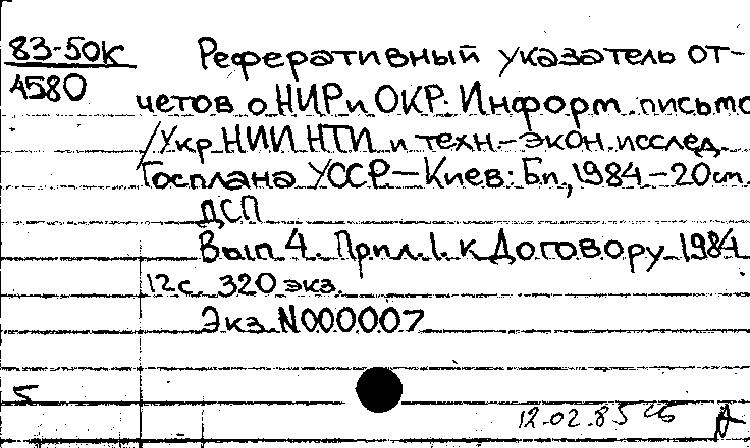 83-50К
А580
Реферативный указатель от-
четов о НИР и ОКР. Информ. письмо
/Укр НИИ НТИ и техн.-экон. исслед.
Госплана УССР.-Киев: Бп, 1984-20см.
ДСП
Вып 4. Прил.1. к Договору 1984
12с. 320 экз.
Экз N000007
12.02.85